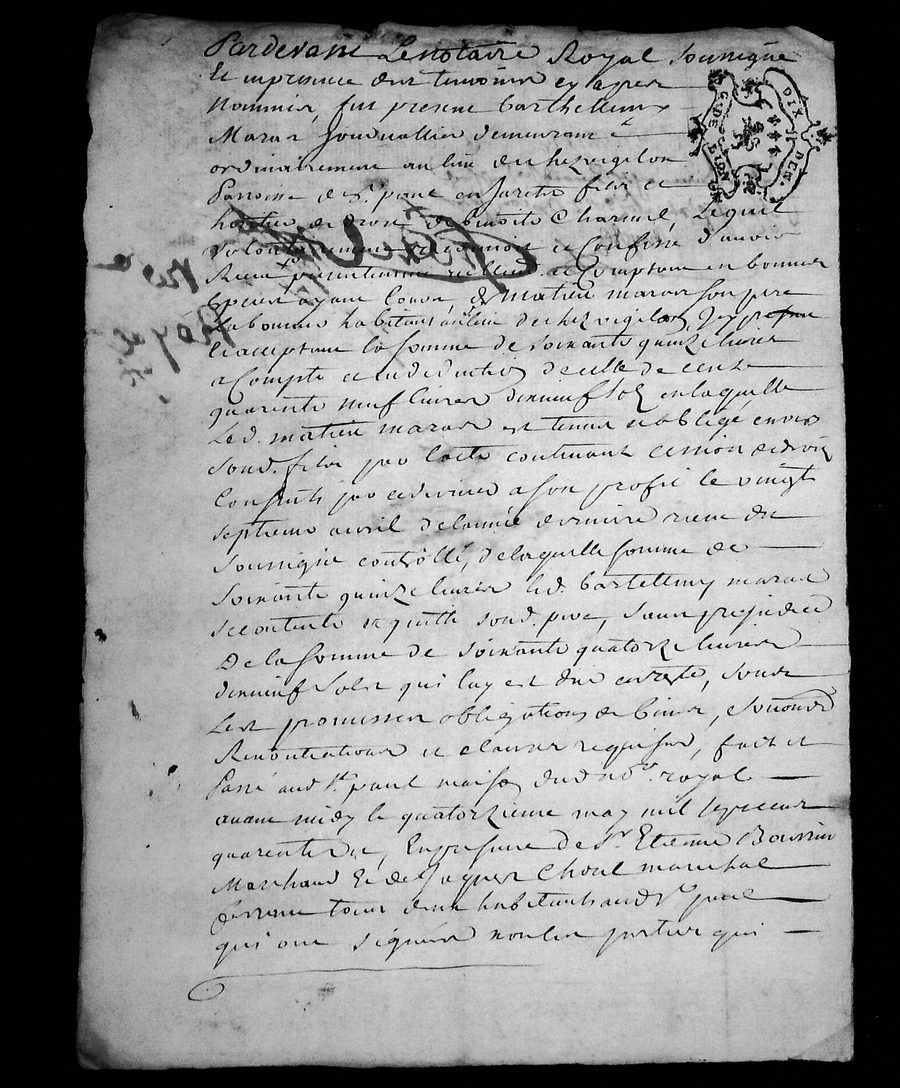 Pardevant Le notaire Royal soussigne
Et en presence des temoins cy apres
Nommés, fut present Barthellemy
Maras Journallier demeurant et
ordinairement au lieu de chés vigilon
Parroisse de St. paul en Jarets fils et
heritier de droit de benoite Charmel, Lequel
volontairement reconnoit et Confesse d'avoir
Receu presentement reellement et Comptant en bonnes
Especes ayant Cours, de matieu maras son pere
laboureur habitant au lieu de chez vigilon, Icy present
et acceptant la somme de soixante quinze livres
a Compte et en deduction de celle de cent
quarente neuf livres dix neuf sols en laquelle
Led. matieu maras est tenu et obligé envers
sond. fils par l'acte contenant cession de droits
Consenti par ce dernier a son profit le vingt
septieme avril de l'année derniere receu du
soussigné controllé, de laquelle somme de
soixante quinze livres led. bartellemy maras
se contente et quitte sond. pere, sans prejudice
De la somme de soixante quatorze livres
dix neuf sols qui luy est due en reste, sous
Les promesses obligations de biens, soumissions
Renontiations et clauses requises, fait et
Passé aud. St. paul maison dud. no.re royal
avant midy le quatorzieme may mil sept cent
quarente, En presence de Sr. Etienne Boissieu
Marchand Et de Jaques Choul marechal
ferrant tous deux habitants aud. St. paul
qui ont signés non les parties qui
G. DE LION
DIX D. DEN.